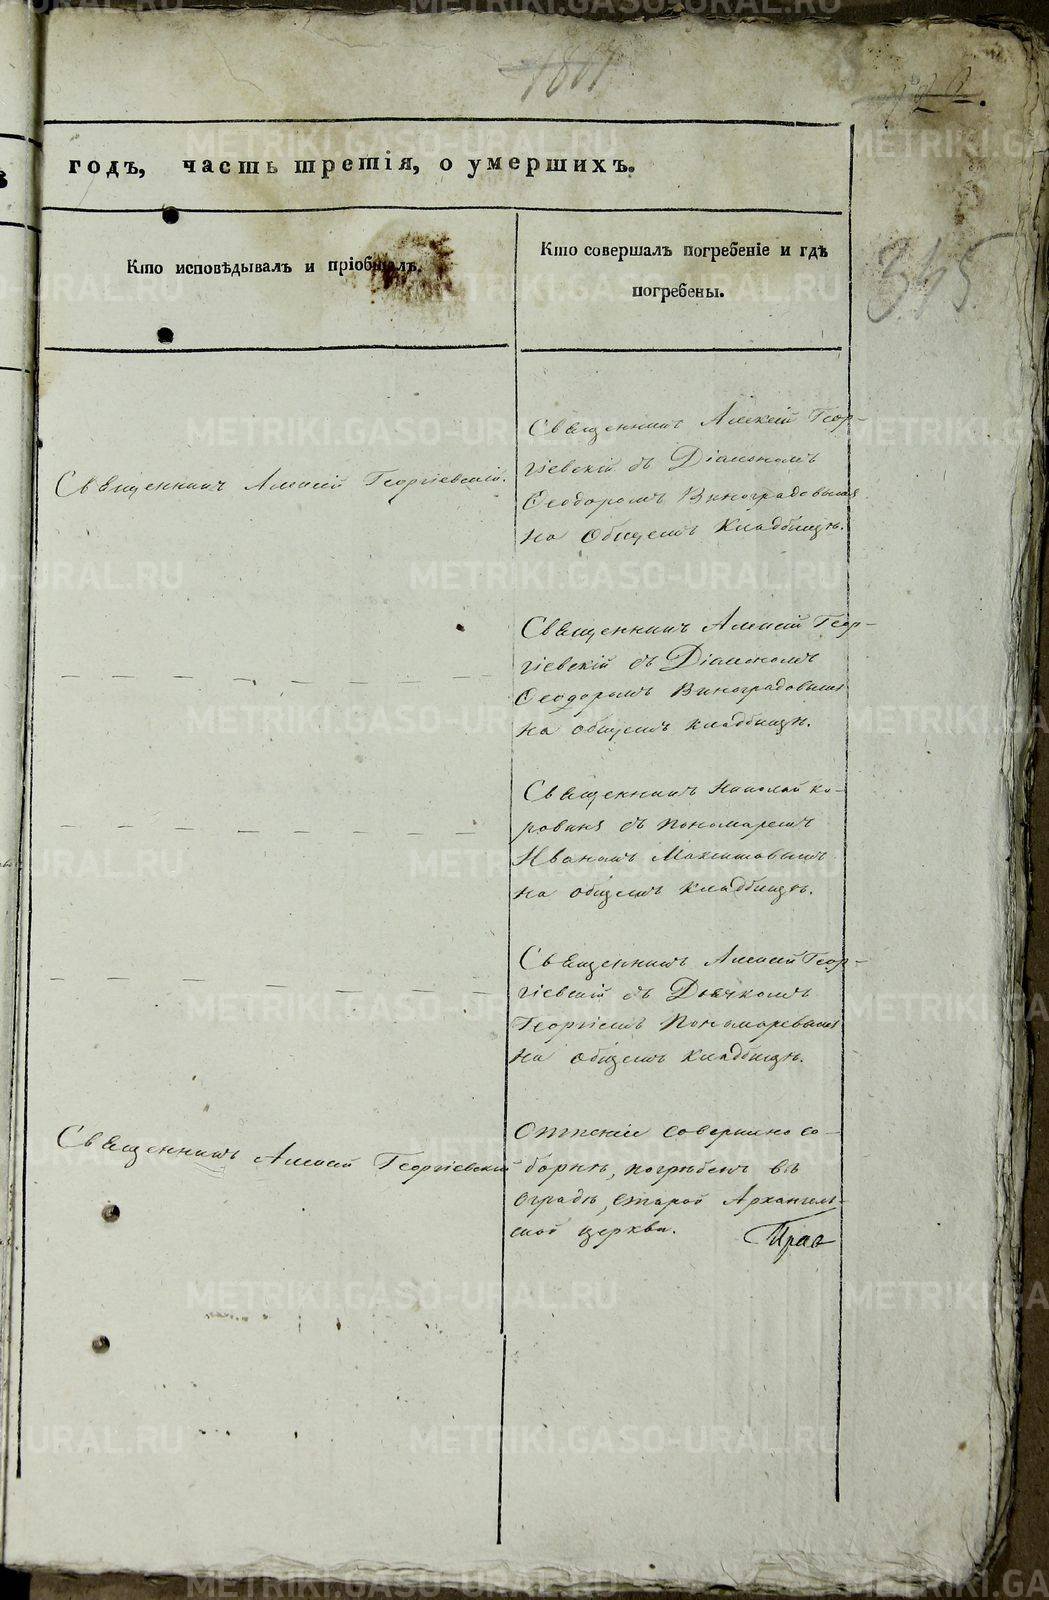 годъ, часть третія, о умершихъ.
Кто исповѣдывалъ и пріобщалъ.
Кто совершалъ погребеніе и гдѣ
погребены.
345
Священникъ Алексій Георгіевскій.
Священникъ Алексій Геор-
гіевскій съ Діакономъ
Ѳеодоромъ Виноградовымъ
на Общемъ Кладбищѣ.
Священникъ Алексій Геор-
гіевскій съ Діакономъ
Ѳеодоромъ Виноградовымъ
на общемъ кладбищѣ.
Священникъ Николай Ко-
ровинъ съ пономаремъ
Иваномъ
на общемъ кладбищѣ.
Священникъ Алексій Геор-
гіевскій съ Дьячкомъ
Георгіемъ Пономаревымъ
на общемъ кладбищѣ.
Священникъ Алексій Георгіевскій
Отпѣніе совершено со-
борнѣ, погребенъ въ
оградѣ, старой Архангель-
ской церкви.
METRIKI.GASO-URAL.RU